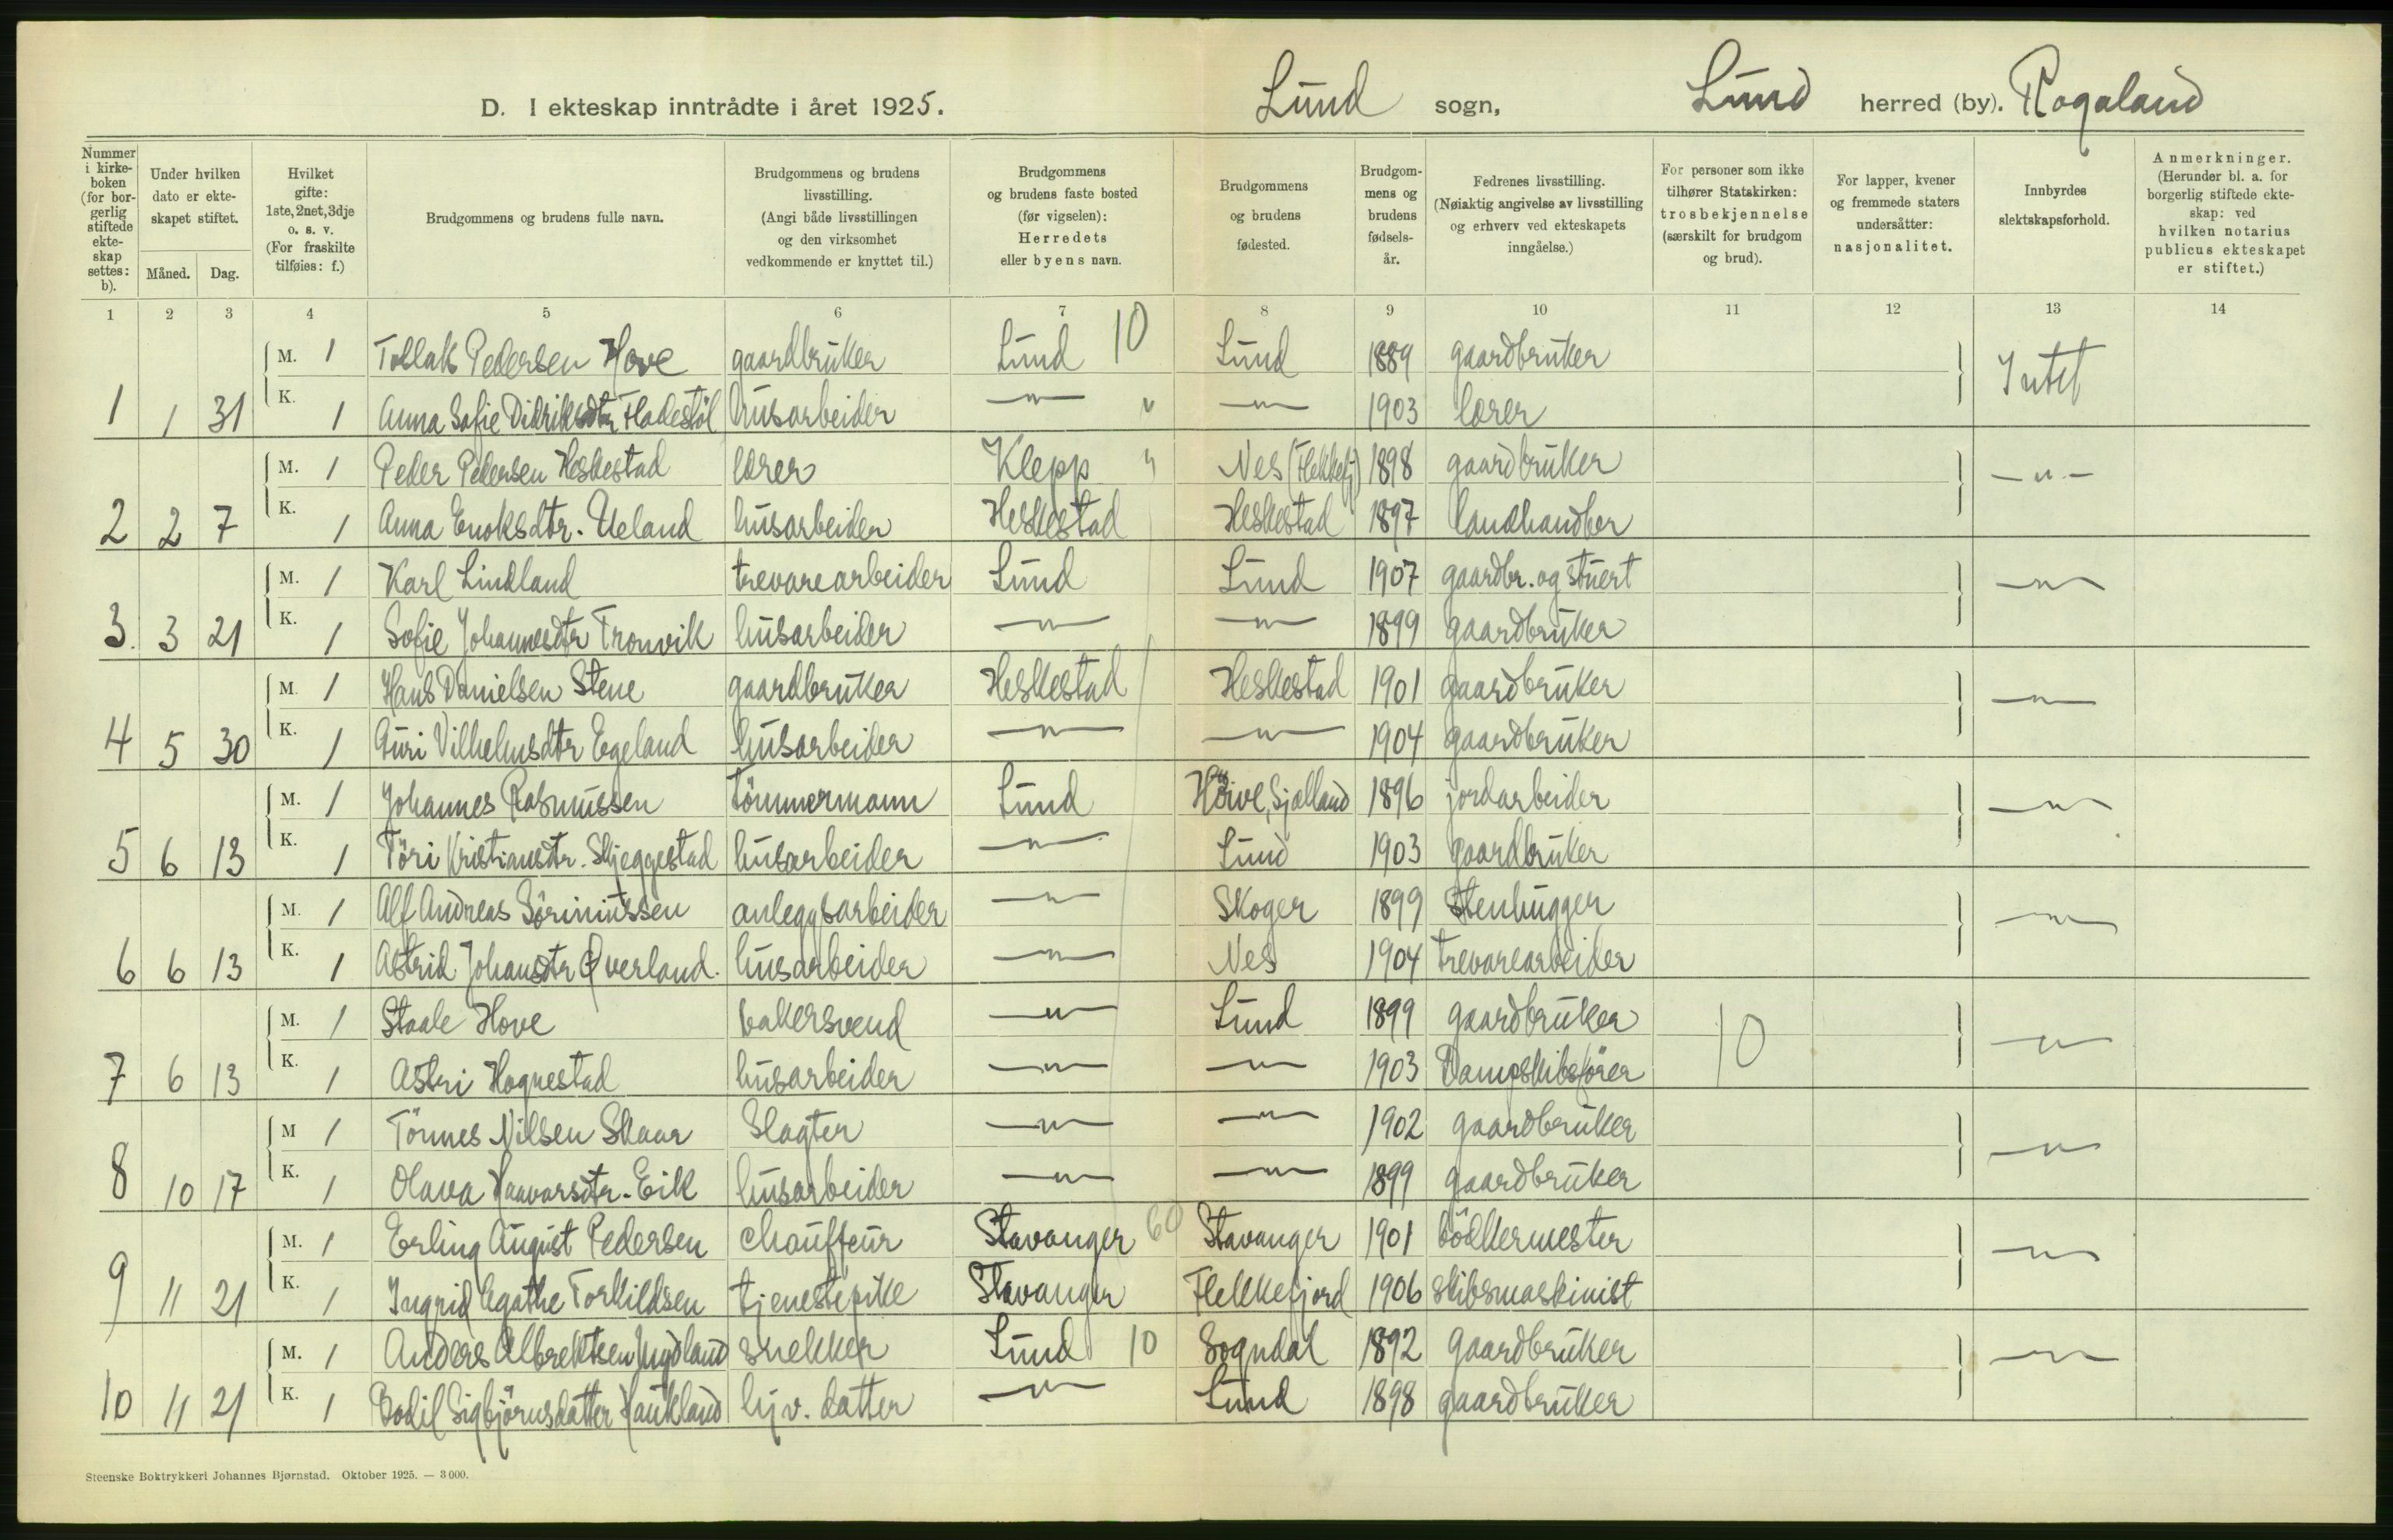 D. I ekteskap inntrådte i året 1925. Lund sogn, Lund herred (by). Rogaland
Nummer i kirkeboken (for borgerlig stiftede ekteskap settes: b).
Under hvilken dato er ekteskapet stiftet.
Måned. Dag.
Hvilket gifte: 1ste, 2net, 3dje o. s. v. (For fraskilte tilføies: f.)
Brudgommens og brudens fulle navn.
Brudgommens og brudens livsstilling. (Angi både livsstillingen og den virksomhet vedkommende er knyttet til.)
Brudgommens og brudens faste bosted (før vigselen): Herredets eller byens navn.
Brudgommens og brudens fødested.
Brudgommens og brudens fødselsår.
Fedrenes livsstilling. (Nøiaktig angivelse av livsstilling og erhverv ved ekteskapets inngåelse.)
For personer som ikke tilhører Statskirken: trosbekjennelse (særskilt for brudgom og brud).
For lapper, kvener og fremmede staters undersåtter: nasjonalitet.
Innbyrdes slektskapsforhold.
Anmerkninger. (Herunder bl. a. for borgerlig stiftede ekteskap: ved hvilken notarius publicus ekteskapet er stiftet.)
1 2 3 4 5 6 7 8 9 10 11 12 13 14
M. 1 Tollak Pedersen Hove gaardbruker Lund 10 Lund 1889 gaardbruker Intet
1 1 31 K. 1 Anna Sofie Didriksdtr Fladestöl husarbeider —"— " —"— 1903 lærer
M. 1 Peder Pedersen Heskestad lærer Klepp " Nes (Flekkefj) 1898 gaardbruker —"—
2 2 7 K. 1 Anna Enoksdtr. Ueland husarbeider Heskestad Heskestad 1897 landhandler
M. 1 Karl Lindland trevarearbeider Lund Lund 1907 gaardbr. og stuert —"—
3. 3 21 K. 1 Sofie Johannesdtr Tronvik husarbeider —"— —"— 1899 gaardbruker
M. 1 Hans Danielsen Stene gaardbruker Heskestad Heskestad 1901 gaardbruker —"—
4 5 30 K. 1 Guri Vilhelmsdtr Egeland husarbeider —"— —"— 1904 gaardbruker
M. 1 Johannes Rasmussen tömmermann Lund Höive, Sjælland 1896 jordarbeider —"—
5 6 13 K. 1 Töri Kristiansdtr. Skjeggestad husarbeider —"— Lund 1903 gaardbruker
M. 1 Alf Andreas Söriniussen anleggsarbeider —"— Skoger 1899 Stenhugger —"—
6 6 13 K. 1 Astrid Johansdtr Øverland. husarbeider —"— Nes 1904 trevarearbeider
M. 1 Staale Hove bakersvend —"— Lund 1899 gaardbruker 10 —"—
7 6 13 K. 1 Astri Hognestad husarbeider —"— —"— 1903 Dampskibsförer
M 1 Tönnes Nilsen Skaar Slagter —"— —"— 1902 gaardbruker —"—
8 10 17 K. 1 Olava Haavarsdtr. Eik husarbeider —"— —"— 1899 gaardbruker
M. 1 Erling August Pedersen chauffeur Stavanger 60 Stavanger 1901 bödkermester —"—
9 11 21 K. 1 Ingrid Agathe Torkildsen tjenestepike Stavanger Flekkefjord 1906 skibsmaskinist
M. 1 Anders Albrektsen Mydland snekker Lund 10 Sogndal 1892 gaardbruker —"—
10 11 21 K. 1 Bodil Sigbjörnsdatter Haukland hjv. datter —"— Lund 1898 gaardbruker
Steenske Boktrykkeri Johannes Bjørnstad. Oktober 1925. — 3 000.